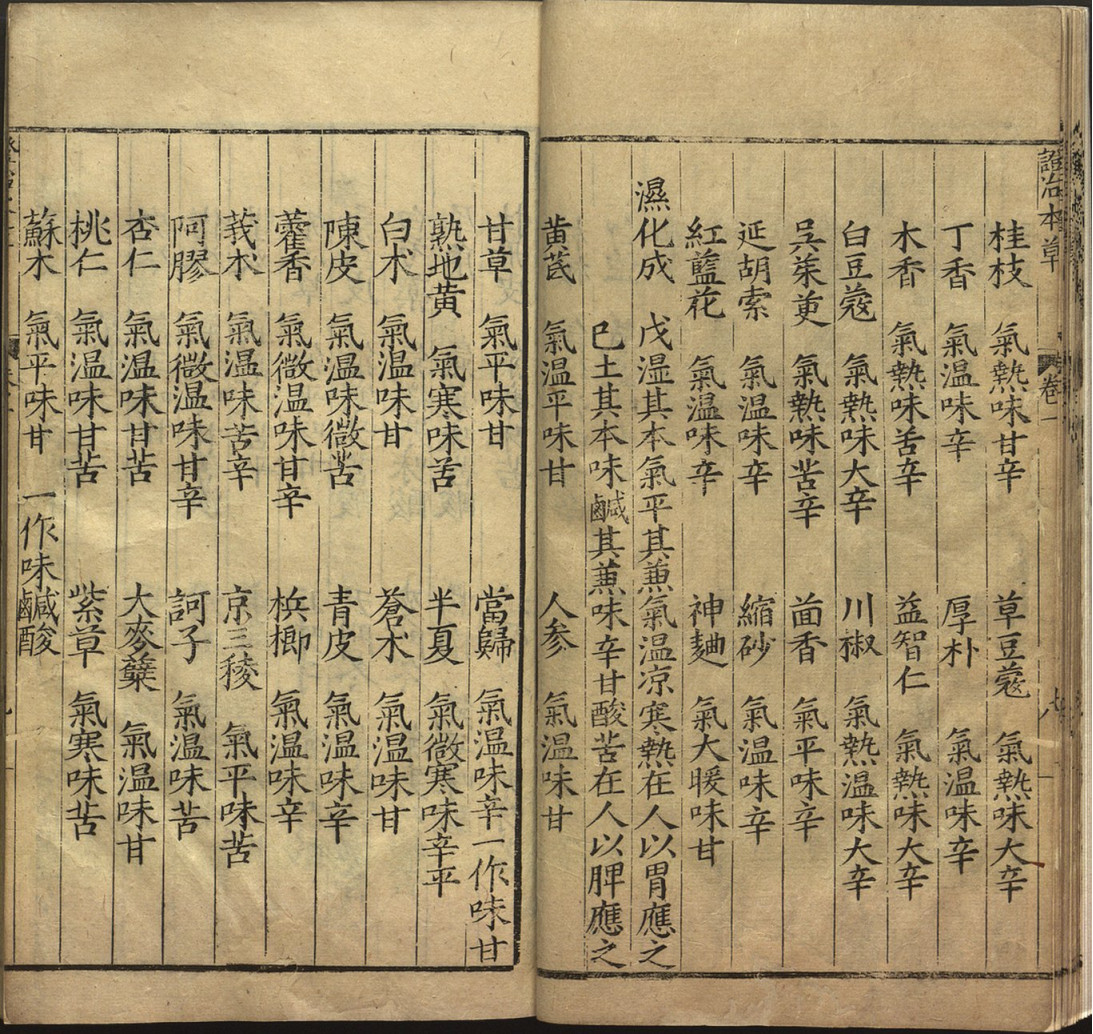 證治本草
卷一
桂枝 氣熱味甘辛 草豆蔻 氣熱味大辛
丁香 氣温味辛 厚朴 氣温味辛
木香 氣熱味苦辛 益智仁 氣熱味大辛
白豆蔻 氣熱味大辛 川椒 氣熱温味大辛
吳茱萸 氣熱味苦辛 茴香 氣平味辛
延胡索 氣温味辛 縮砂 氣温味辛
紅藍花 氣温味辛 神麯 氣大暖味甘
濕化成 戊湿其本氣平其蒹氣温凉寒熱在人以胃應之
己土其本味鹹其蒹味辛甘酸苦在人以脾應之
黄芪 氣温平味甘 人参 氣温味甘
甘草 氣平味甘 當歸 氣温味辛一作味甘
熟地黄 氣寒味苦 半夏 氣微寒味辛平
白术 氣温味甘 蒼术 氣温味甘
陳皮 氣温味微苦 青皮 氣温味辛
藿香 氣微温味甘辛 梹榔 氣温味辛
莪术 氣温味苦辛 京三稜 氣平味苦
阿膠 氣微温味甘辛 訶子 氣温味苦
杏仁 氣温味甘苦 大麥櫱 氣温味甘
桃仁 氣温味甘苦 紫草 氣寒味苦
蘇木 氣平味甘 一作味鹹酸